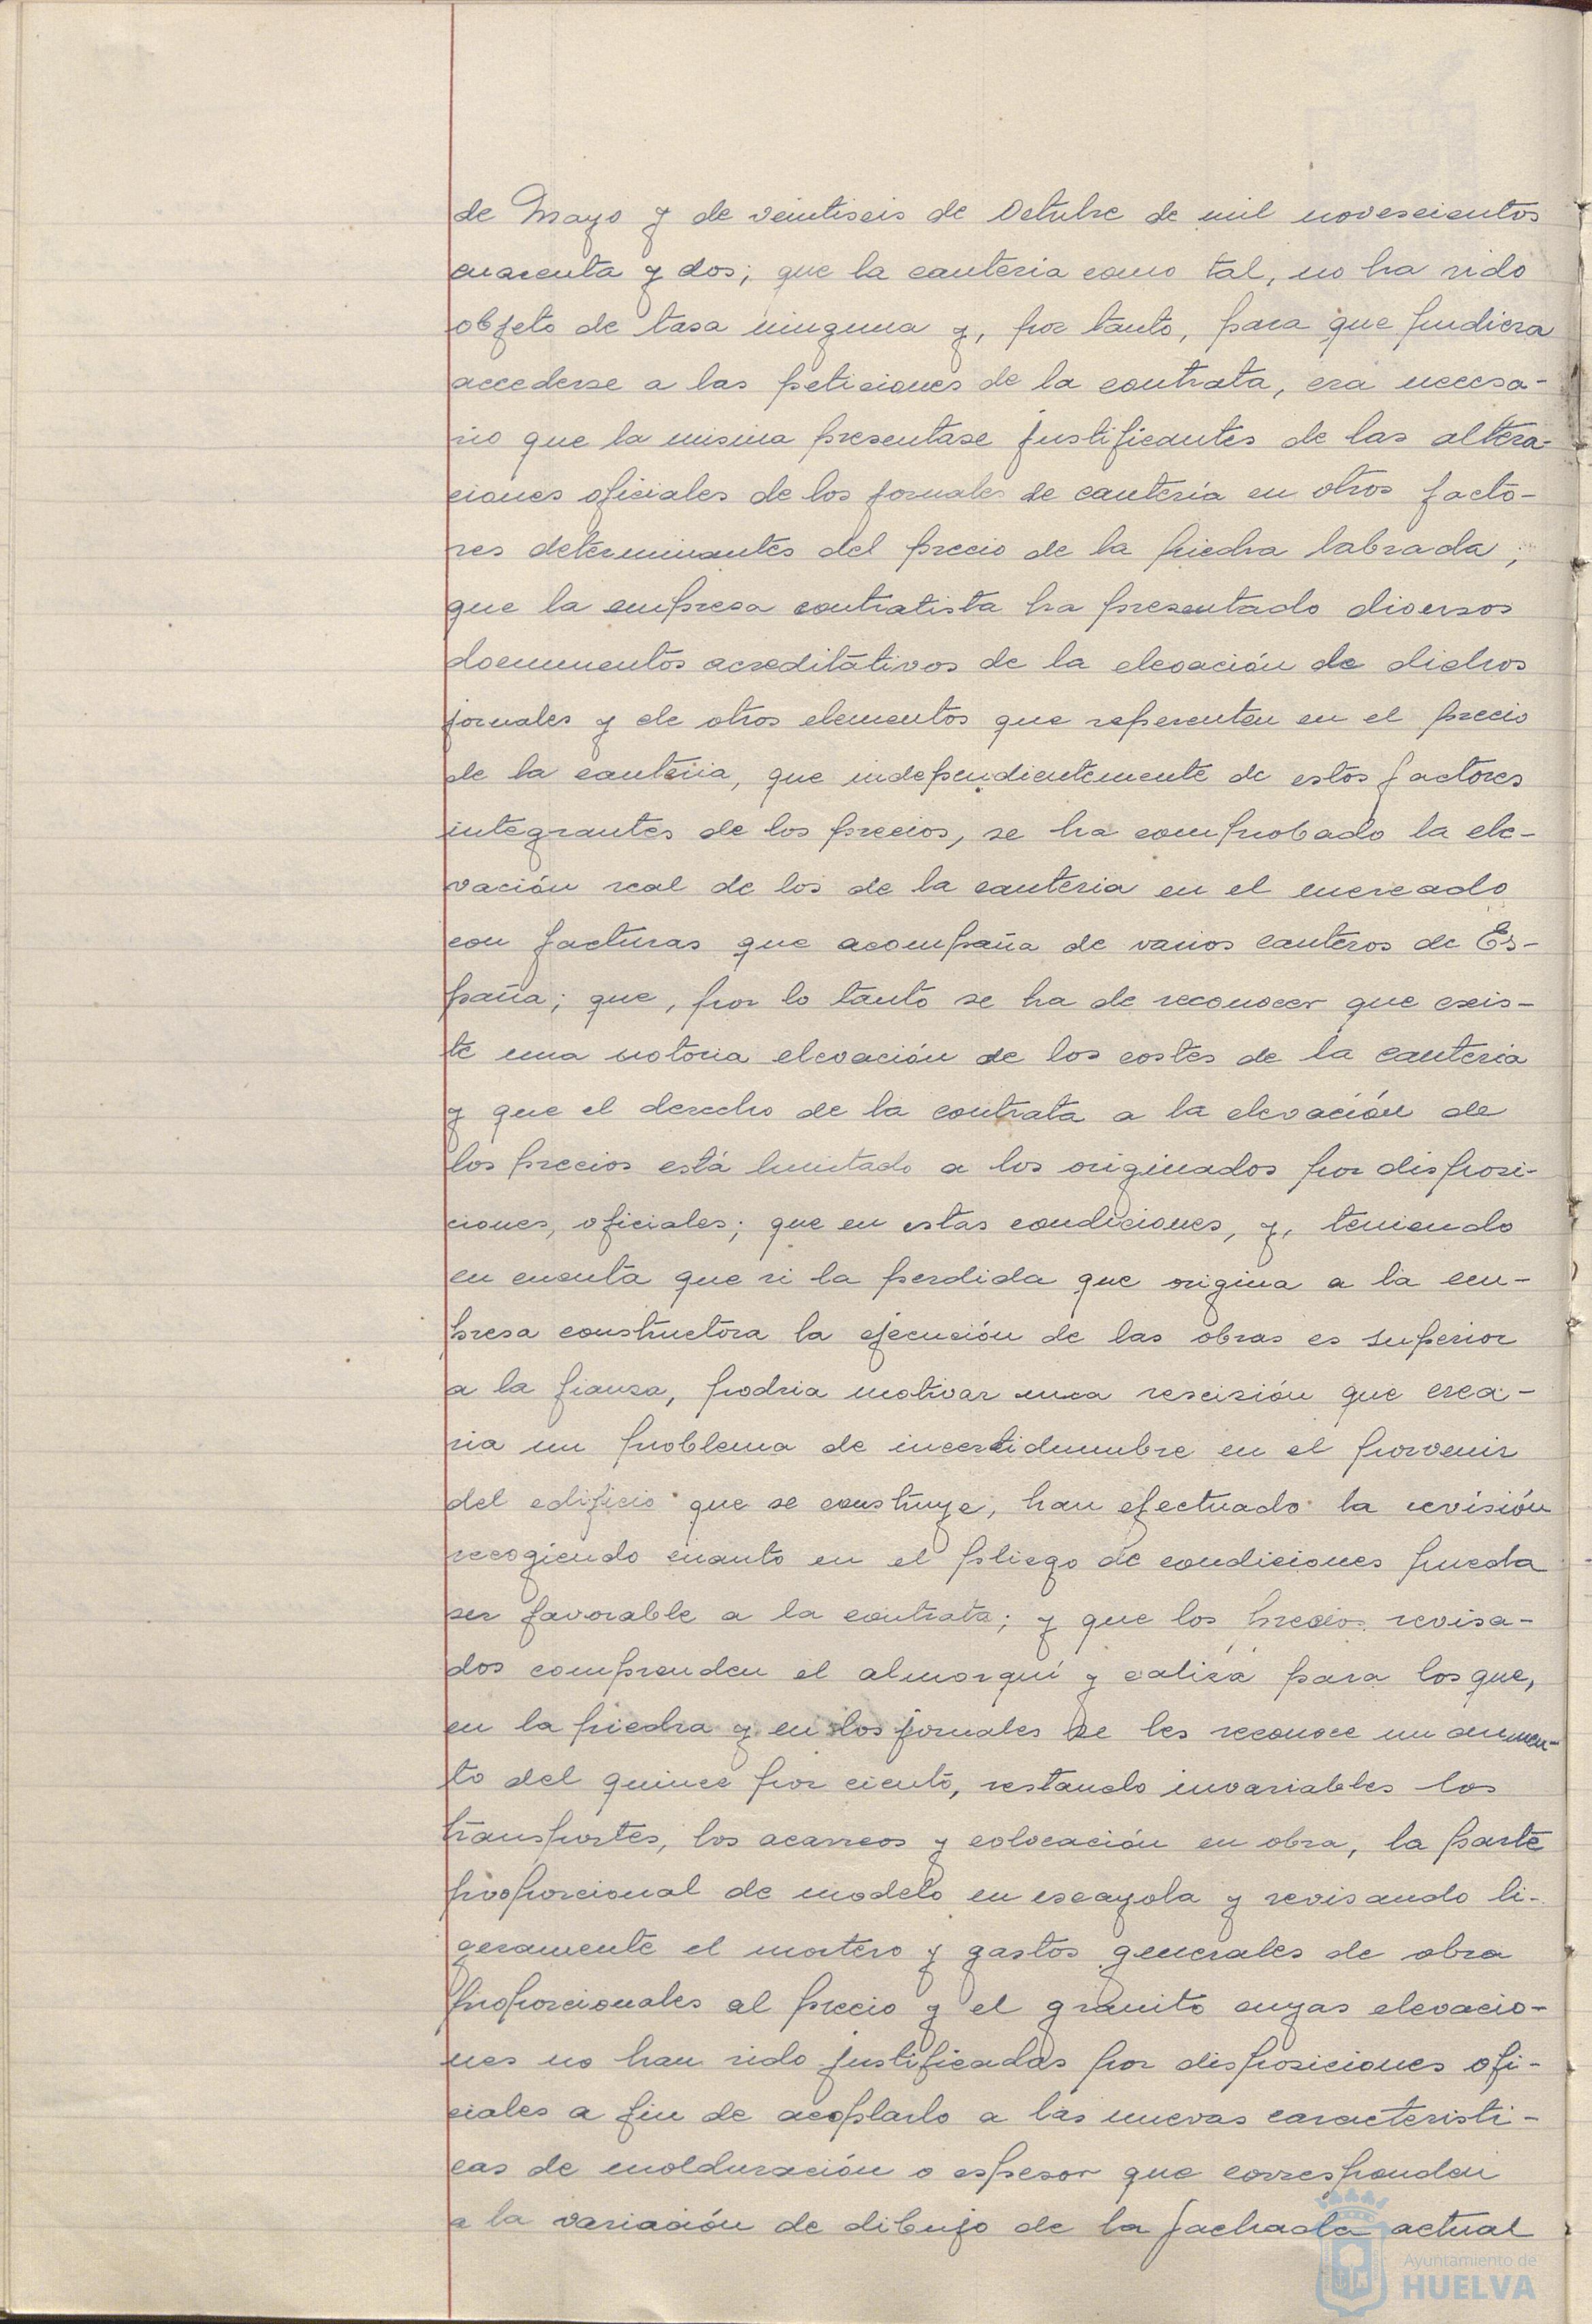 de Mayo y de veintiseis de Octubre de mil novescientos
cuarenta y dos; que la canteria como tal, no ha sido
objeto de tasa ninguna y, por tanto, para que pudiera
accederse a las peticiones de la contrata, era necesa-
rio que la misma presentase justificantes de las altera-
ciones oficiales de los jornales de cantería en otros facto-
res determinantes del precio de la piedra labrada;
que la empresa contratista ha presentado diversos
documentos acreditativos de la elevación de dichos
jornales y de otros elementos que repercuten en el precio
de la canteria, que independientemente de estos factores
integrantes de los precios, se ha comprobado la ele-
vación real de los de la canteria en el mercado
con facturas que acompaña de varios canteros de Es-
paña; que, por lo tanto se ha de reconocer que exis-
te una notoria elevación de los costes de la canteria
y que el derecho de la contrata a la elevación de
los precios está limitado a los originados por disposi-
ciones, oficiales; que en estas condiciones, y, teniendo
en cuenta que si la perdida que origina a la em-
presa constructora la ejecución de las obras es superior
a la fianza, podria motivar una rescisión que crea-
ria un problema de incertidumbre en el porvenir
del edificio que se construye, han efectuado la revisión
recogiendo cuanto en el pliego de condiciones pueda
ser favorable a la contrata; y que los precios revisa-
dos comprenden el almorquí y caliza para los que,
en la piedra y en los jornales se les reconoce un aumen-
to del quince por ciento, restando invariables los
transportes, los acarreos y colocación en obra, la parte
proporcional de modelo en escayola y revisando li-
geramente el mortero y gastos generales de obra
proporcionales al precio y el granito cuyas elevacio-
nes no han sido justificadas por disposiciones ofi-
ciales a fin de acoplarlo a las nuevas caracteristi-
cas de molduración o espesor que corresponden
a la variación de dibujo de la fachada actual
Ayuntamiento de
HUELVA